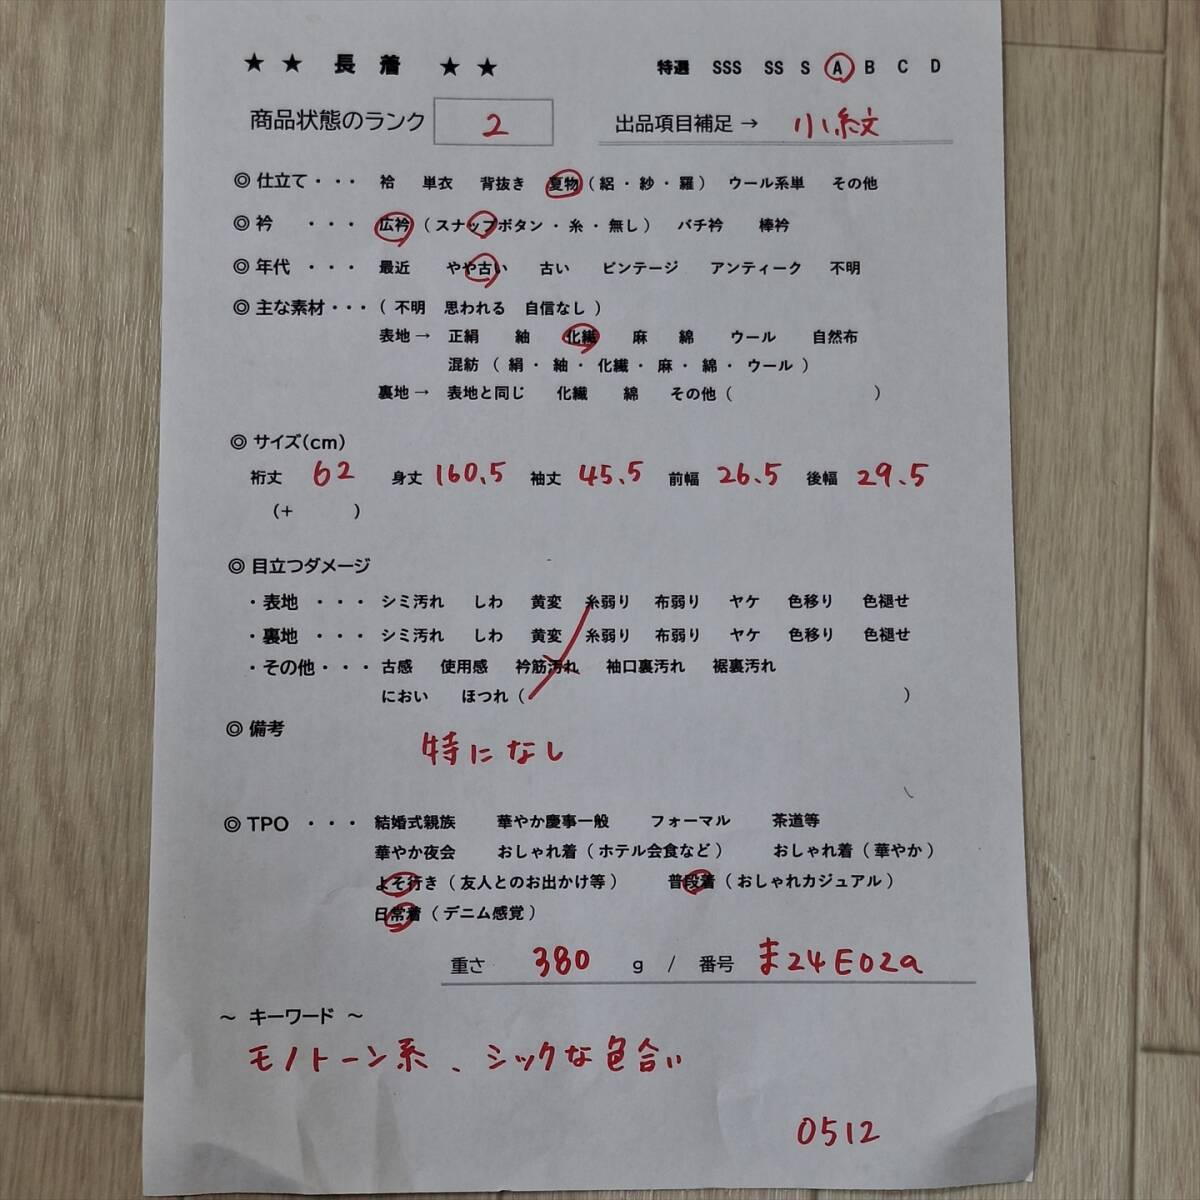 ★ ★ 長 着 ★ ★ 特選 SSS SS S A B C D
商品状態のランク 2 出品項目補足 → 小紋
◎ 仕立て・・・ 袷 単衣 背抜き 夏物 ( 絽 ・ 紗 ・ 羅 ) ウール系単 その他
◎ 衿 ・・・ 広衿 ( スナップボタン ・ 糸 ・ 無し ) バチ衿 棒衿
◎ 年代 ・・・ 最近 やや古い 古い ビンテージ アンティーク 不明
◎ 主な素材・・・ ( 不明 思われる 自信なし )
表地 → 正絹 紬 化繊 麻 綿 ウール 自然布
混紡 ( 絹 ・ 紬 ・ 化繊 ・ 麻 ・ 綿 ・ ウール )
裏地 → 表地と同じ 化繊 綿 その他 ( )
◎ サイズ(cm)
裄丈 62 身丈 160.5 袖丈 45.5 前幅 26.5 後幅 29.5
(+ )
◎ 目立つダメージ
・表地 ・・・ シミ汚れ しわ 黄変 糸弱り 布弱り ヤケ 色移り 色褪せ
・裏地 ・・・ シミ汚れ しわ 黄変 糸弱り 布弱り ヤケ 色移り 色褪せ
・その他・・・ 古感 使用感 衿筋汚れ 袖口裏汚れ 裾裏汚れ
におい ほつれ ( )
◎ 備考
特になし
◎ TPO ・・・ 結婚式親族 華やか慶事一般 フォーマル 茶道等
華やか夜会 おしゃれ着 ( ホテル会食など ) おしゃれ着 ( 華やか )
よそ行き ( 友人とのお出かけ等 ) 普段着 ( おしゃれカジュアル )
日常着 ( デニム感覚 )
重さ 380 g / 番号 ま24E02a
~ キーワード ~
モノトーン系、シックな色合い
0512